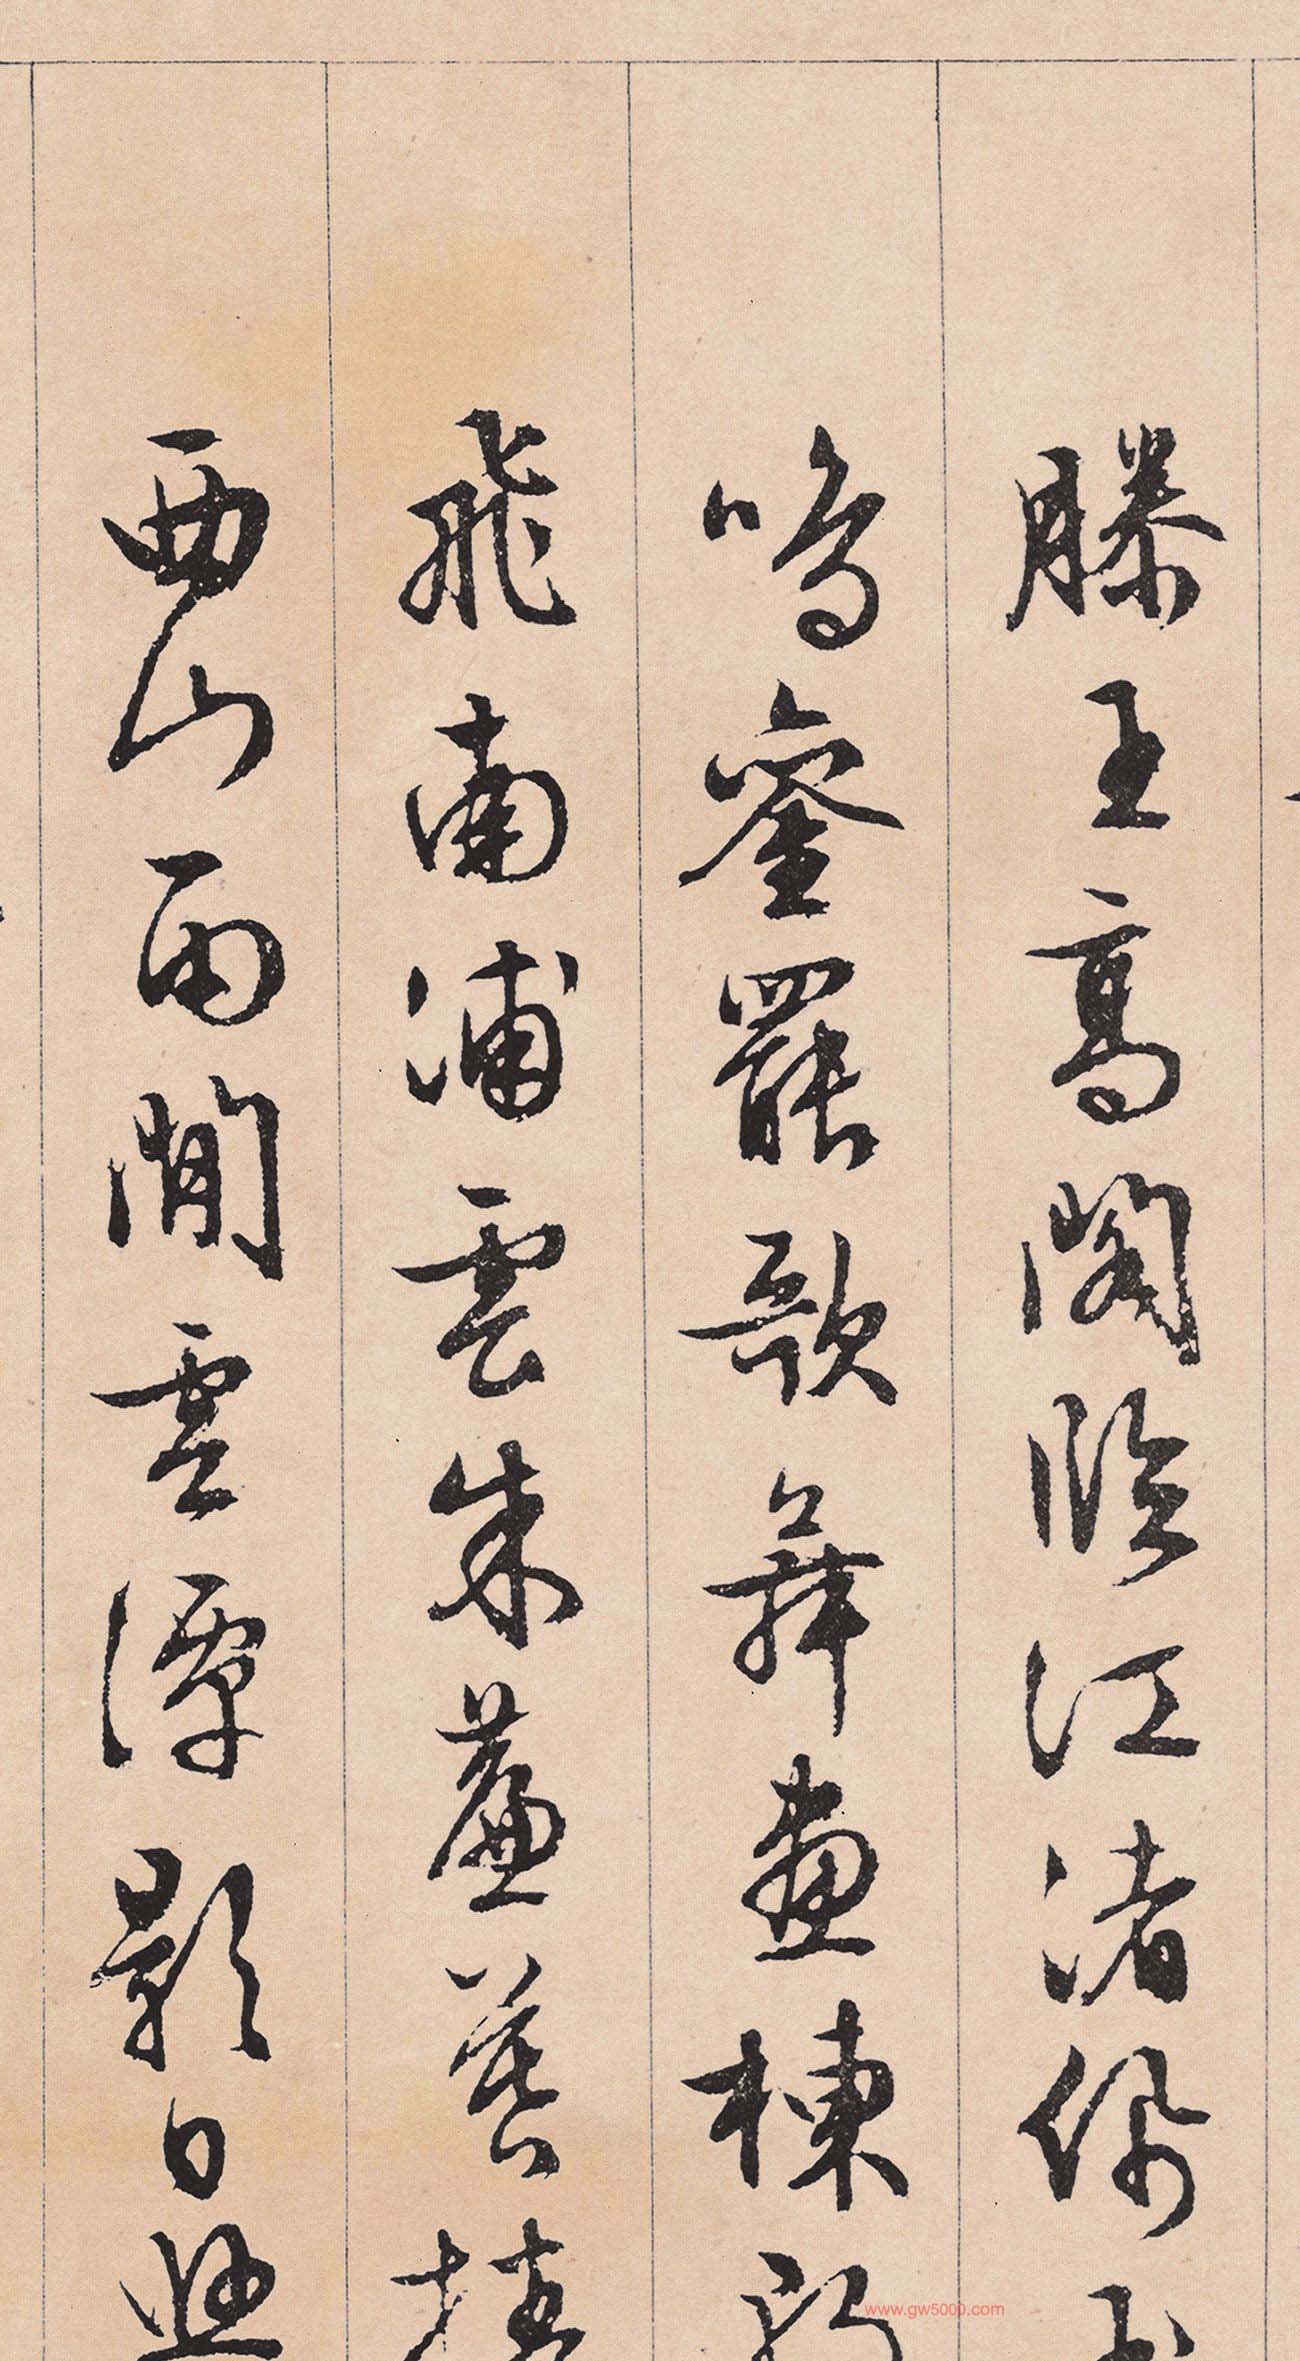 滕王高閣臨江渚佩
鳴鑾罷歌舞畫棟朝
飛南浦雲朱簾暮捲
西山雨閒雲潭影日悠
www.gw5000.com